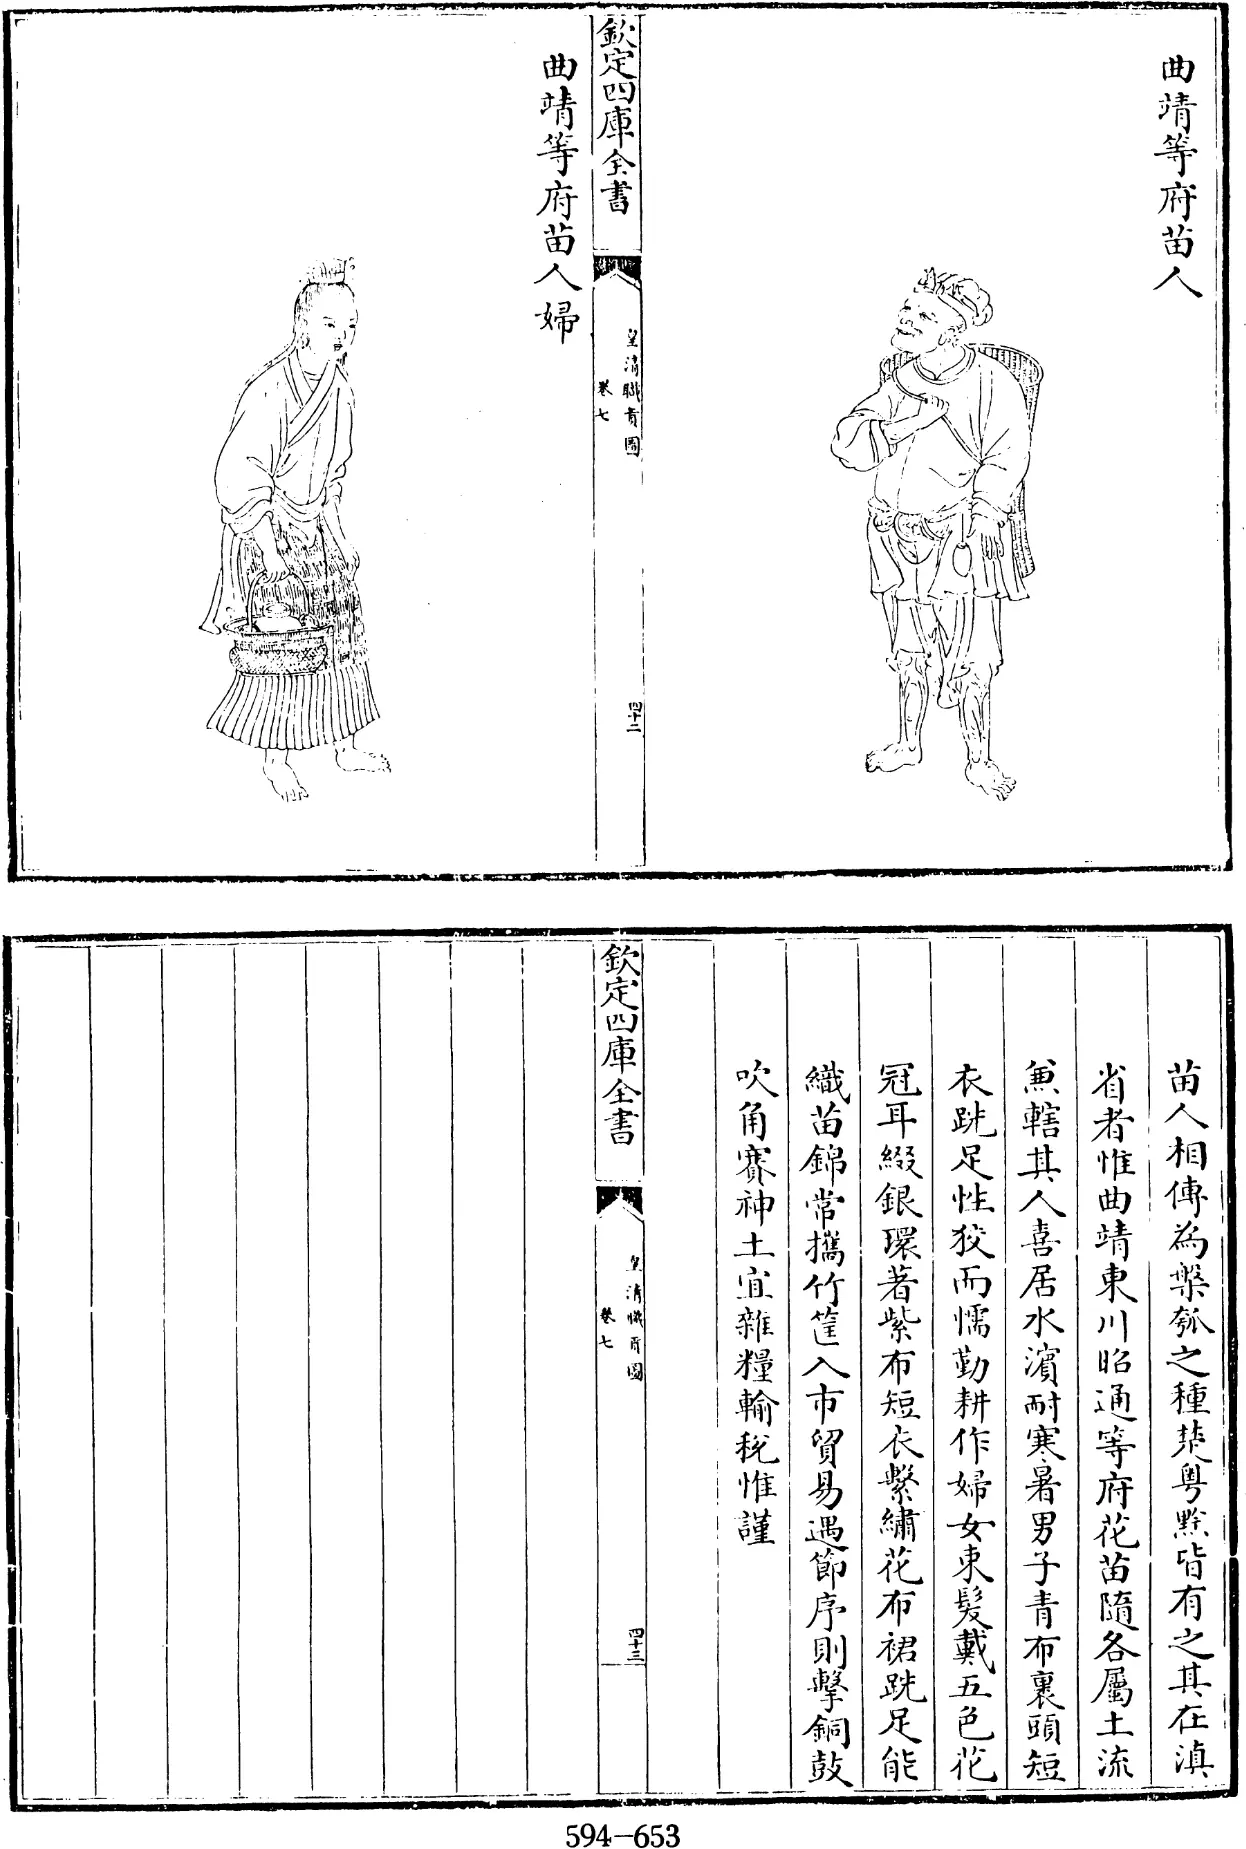 曲靖等府苗人
欽定四庫全書
皇清職貢圖
卷七
四十二
曲靖等府苗人婦
苗人相傳為槃瓠之種楚粵黔皆有之其在滇
省者惟曲靖東川昭通等府花苗隨各屬土流
兼轄其人喜居水濱耐寒暑男子青布裹頭短
衣跣足性狡而懦勤耕作婦女束髮戴五色花
冠耳綴銀環著紫布短衣繫繡花布裙跣足能
織苗錦常攜竹筐入市貿易遇節序則擊銅鼓
吹角賽神土宜雜糧輸稅惟謹
欽定四庫全書
皇清職貢圖
卷七
四十三
594-653